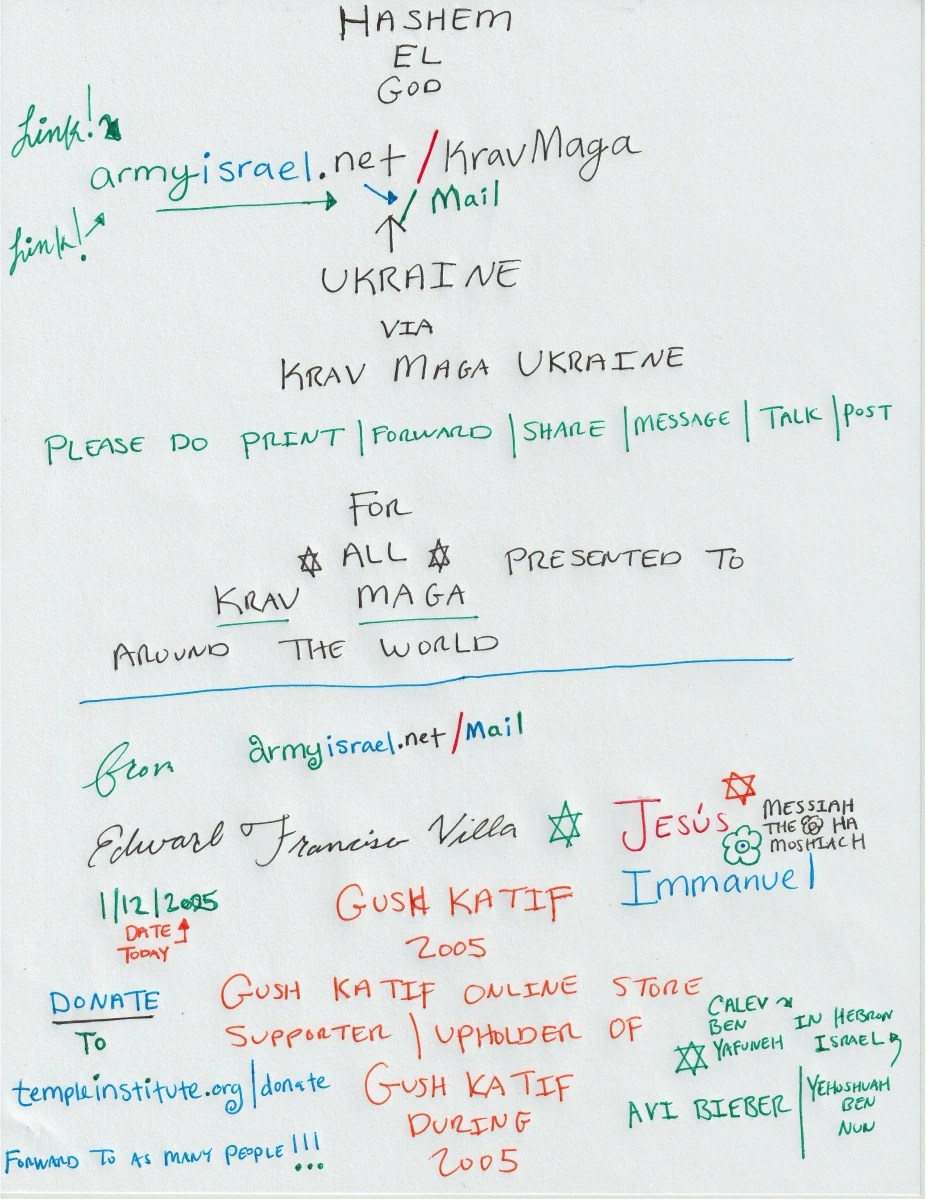 HASHEM
EL
GOD
Link!
armyisrael.net /KravMaga
/ Mail
Link!
UKRAINE
VIA
KRAV MAGA UKRAINE
PLEASE DO PRINT | FORWARD | SHARE | MESSAGE | TALK | POST
FOR
✡ ALL ✡ PRESENTED TO
KRAV MAGA
AROUND THE WORLD
from armyisrael.net/Mail
Edward Francisco Villa ✡ JESÚS ✡
MESSIAH
THE HA
MOSHIACH
Immanuel
1/12/2005
DATE
TODAY
GUSH KATIF
2005
DONATE
TO
templeinstitute.org/donate
FORWARD TO AS MANY PEOPLE!!!...
GUSH KATIF ONLINE STORE
SUPPORTER | UPHOLDER OF
GUSH KATIF
DURING
2005
CALEV
BEN
✡ YAFUNEH
IN HEBRON
ISRAEL
AVI BIEBER
YEHOSHUAH
BEN
NUN